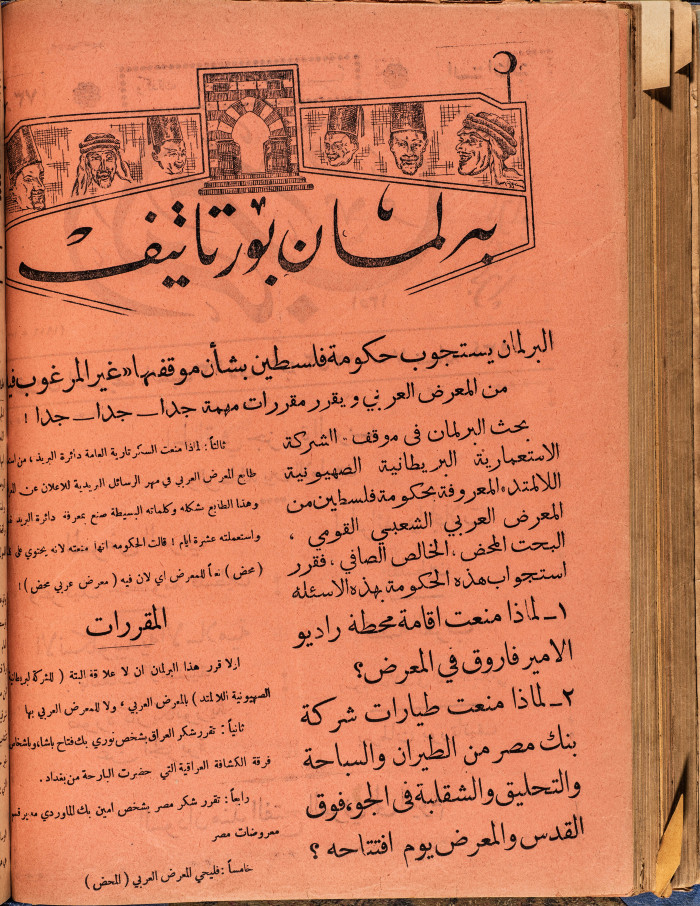 برلمان بورتاتيف
البرلمان يستجوب حكومة فلسطين بشأن موقفها «غير المرغوب
من المعرض العربي ويقرر مقررات مهمة جدا — جدا — جدا !
بحث البرلمان في موقف «الشركة
الاستعمارية البريطانية الصهيونية
اللالمتد» المعروفة بحكومة فلسطين من
المعرض العربي الشعبي القومي ،
البحت المحض ، الخالص الصافي ، فقرر
استجواب هذه الحكومة بهذه الاسئله
١ـ لماذا منعت اقامة محطة راديو
الامير فاروق في المعرض ؟
٢ـ لماذا منعت طيارات شركة
بنك مصر من الطيران والسباحة
والتحليق والشقلبة في الجو ، فوق
القدس والمعرض يوم افتتاحه ؟
ثالثاً : لماذا منعت السكرتارية العامة دائرة البريد ، من
طابع المعرض العربي في مهر الرسائل البريدية للاعلان عن
وهذا الطابع بشكله وكلماته البسيطة صنع بمعرفة دائرة البريد
واستعملته عشرة ايام ! قالت الحكومه انها منعته لانه يحتوي على
( محض ) نعتاً للمعرض اي لان فيه ( معرض عربي محض ) !
المقررات
اولا قرر هذا البرلمان ان لا علاقة البتة ( للشركة البريطانية
الصهيونية اللالمتد ) بالمعرض العربي ، ولا للمعرض العربي بها
ثانياً : تقرر شكر العراق بشخص نوري بك فتاح باشا ، وباشخاص
فرقة الكشافة العراقية التي حضرت البارحة من بغداد .
رابعاً : تقرر شكر مصر بشخص امين بك الماوردي مدير قسم
معروضات مصر
خامساً : فليحي المعرض العربي ( المحض )